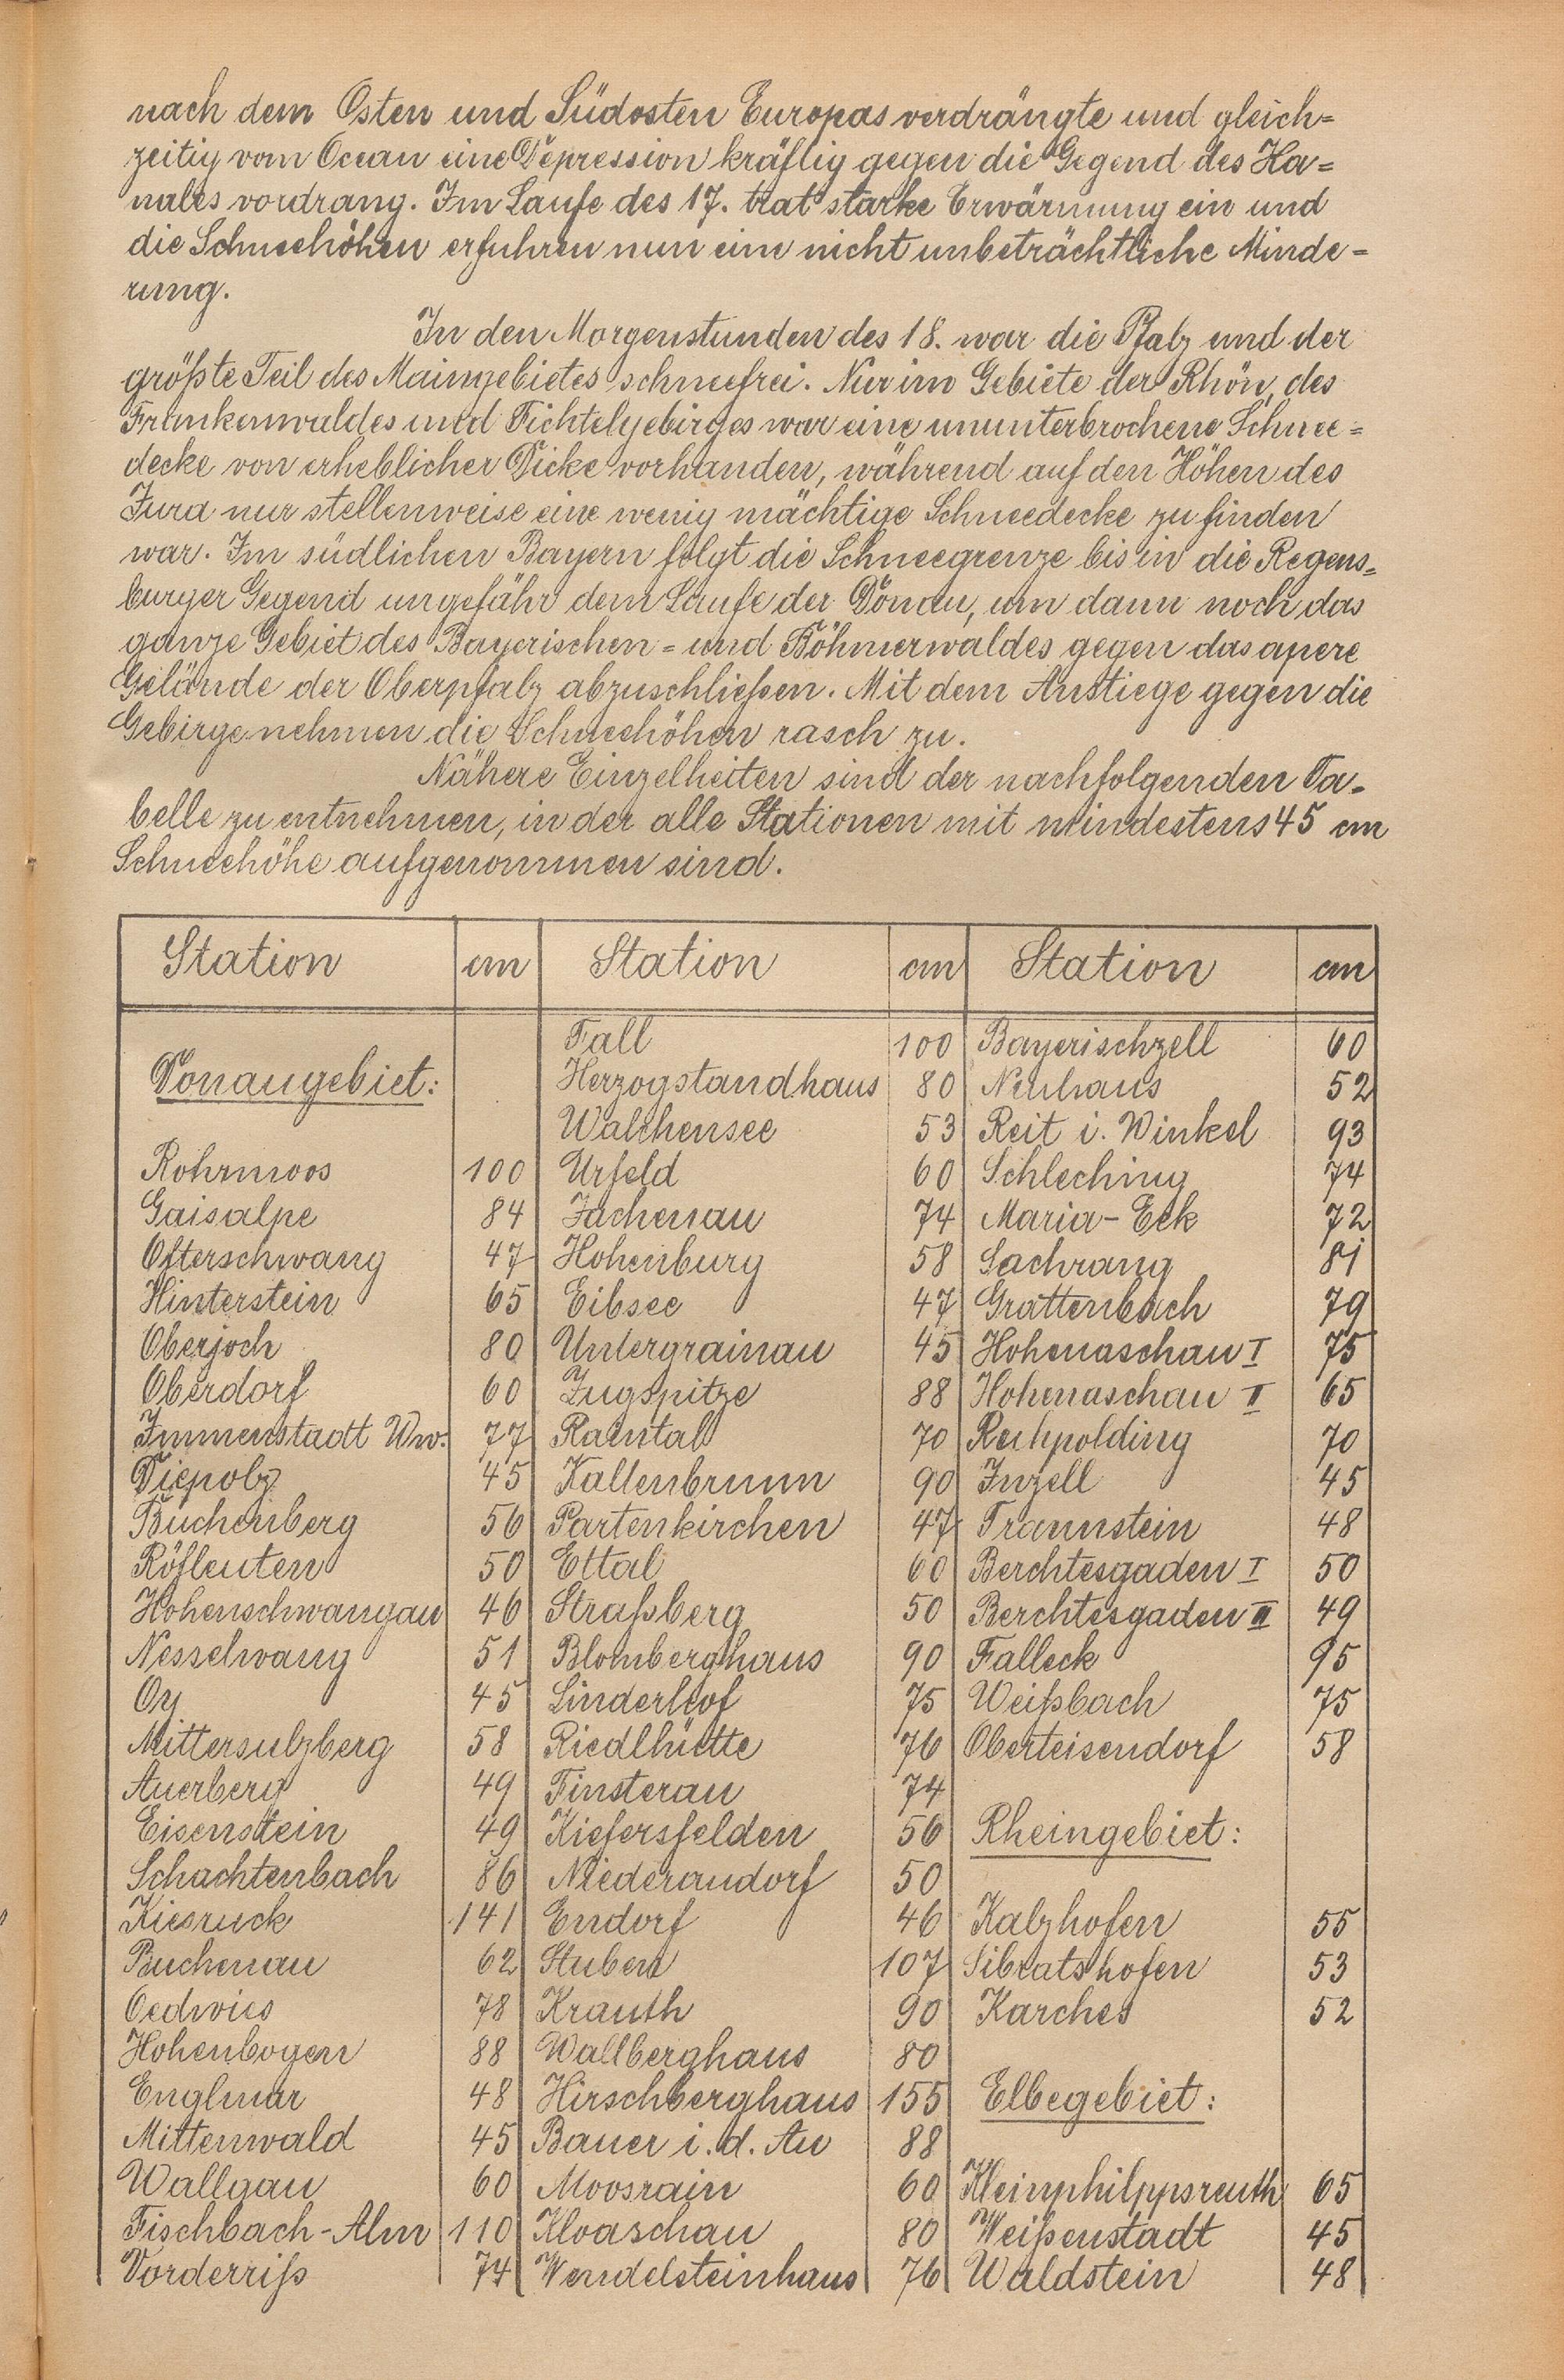 nach dem Osten und Südosten Europas verdrängte und gleich=
zeitig vom Ocean eine Depression kräftig gegen die Gegend des Ka=
nales vordrang. Im Laufe des 17. trat starke Erwärmung ein und
die Schneehöhen erfuhren nun eine nicht unbeträchtliche Minde=
rung.
In den Morgenstunden des 18. war die Pfalz und der
größte Teil des Maingebietes schneefrei. Nur im Gebiete der Rhön, des
Frankenwaldes und Fichtelgebirges war eine ununterbrochene Schnee=
decke von erheblicher Dicke vorhanden, während auf den Höhen des
Jura nur stellenweise eine wenig mächtige Schneedecke zu finden
war. Im südlichen Bayern folgt die Schneegrenze bis in die Regens=
burger Gegend ungefähr dem Laufe der Donau, um dann noch das
ganze Gebiet des Bayerischen= und Böhmerwaldes gegen das apere
Gelände der Oberpfalz abzuschließen. Mit dem Anstiege gegen die
Gebirge nehmen die Schneehöhen rasch zu.
Nähere Einzelheiten sind der nachfolgenden Ta=
belle zu entnehmen, in der alle Stationen mit mindestens 45 cm
Schneehöhe aufgenommen sind.
Station cm Station cm Station cm
Fall 100 Bayerischzell 60
Donaugebiet: Herzogstandhaus 80 Neuhaus 52
Walchensee 53 Reit i. Winkel 93
Rohrmoos 100 Urfeld 60 Schleching 74
Gaisalpe 84 Jachenau 74 Maria-Eck 72
Ofterschwang 47 Hohenburg 58 Sachrang 81
Hinterstein 65 Eibsee 47 Grattenbach 79
Oberjoch 80 Untergrainau 45 Hohenaschau I 75
Oberdorf 60 Zugspitze 88 Hohenaschau II 65
Immenstadt Ww. 77 Raintal 70 Ruhpolding 70
Diepolz 45 Kaltenbrunn 90 Inzell 45
Buchenberg 56 Partenkirchen 47 Traunstein 48
Röfleuten 50 Ettal 60 Berchtesgaden I 50
Hohenschwangau 46 Straßberg 50 Berchtesgaden III 49
Nesselwang 51 Blomberghaus 90 Falleck 95
Oy 45 Linderhof 75 Weißbach 75
Mittersulzberg 58 Riedlhütte 76 Oberteisendorf 58
Auerberg 49 Finsterau 74
Eisenstein 49 Kiefersfelden 56 Rheingebiet:
Schachtenbach 86 Niederaudorf 50
Kiesruck 141 Endorf 46 Kalzhofen 55
Buchenau 62 Stuben 107 Sibratshofen 53
Oedwies 78 Krauth 90 Karches 52
Hohenbogen 88 Wallberghaus 80
Englmar 48 Hirschberghaus 155 Elbegebiet:
Mittenwald 45 Bauer i. d. Au 88
Wallgau 60 Moosrain 60 Kleinphilppsreuth 65
Fischbach-Alm 110 Kloaschau 80 Weißenstadt 45
Vorderriß 74 Wendelsteinhaus 76 Waldstein 48